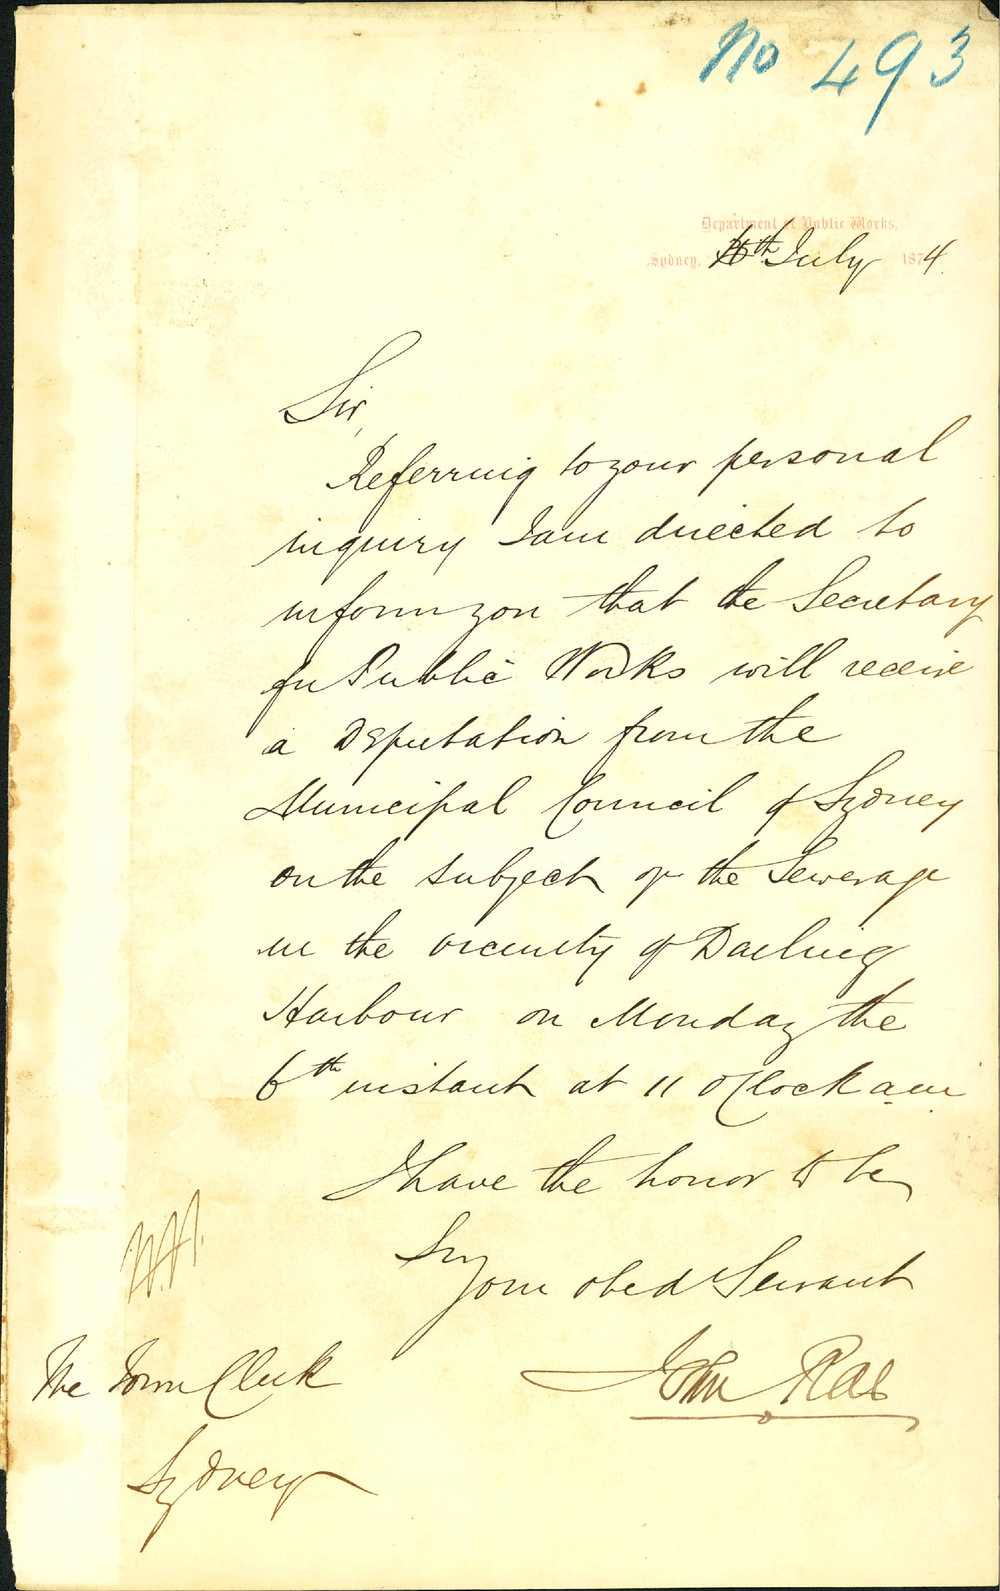 No 493
Department of Public Works.
Sydney, 4th July 1874.
Sir,
Referring to your personal
inquiry I am directed to
inform you that the Secretary
for Public Works will receive
a Deputation from the
Municipal Council of Sydney
on the subject of the Sewerage
in the vicinity of Darling
Harbour on Monday the
6th instant at 11 o'Clock a.m.
I have the honor to be
Sir
Your obed Servant
John Rae
The Town Clerk
Sydney